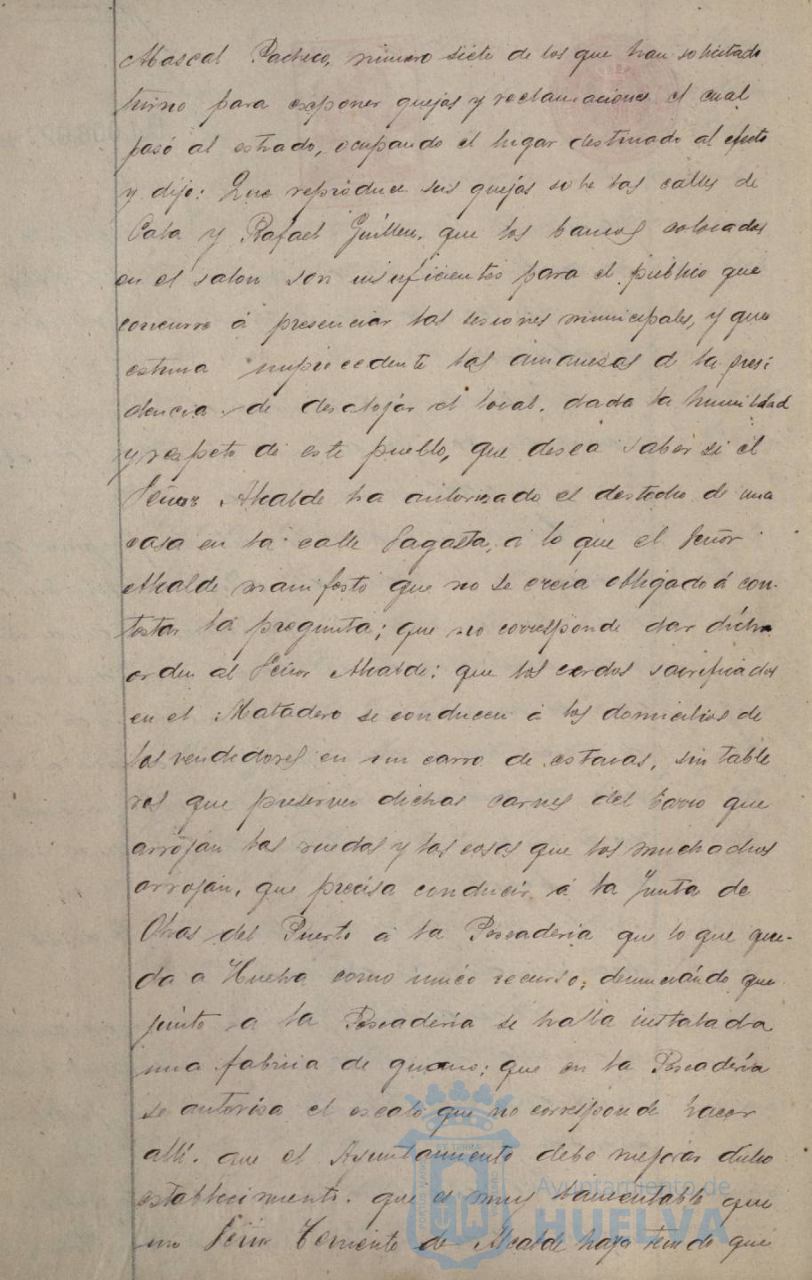 Mascal Pacheco, número siete de los que han solicitado
turno para exponer quejas y reclamaciones el cual
pasó al estrado, ocupando el lugar destinado al efecto
y dijo: Que reproduce sus quejas sobre las calles de
Cala y Rafael Guillen, que los bancos colocados
en el salon son insuficientes para el público que
concurre á presenciar las sesiones municipales, y que
estima improcedente las amenazas de la presi
dencia de desalojar el local, dada la humildad
y respeto de este pueblo, que desea saber si el
Señor Alcalde ha autorizado el destecho de una
casa en la calle Sagasta, á lo que el Señor
Alcalde manifestó que no se creia obligado á con-
testar la pregunta; que no corresponde dar dicha
orden al Señor Alcalde: que los cerdos sacrificados
en el Matadero se conducen á los domicilios de
los vendedores en un carro de estacas, sin table
ros que preserven dichas carnes del barro que
arrojan las ruedas y las cosas que los muchachos
arrojan, que precisa conducir á la Junta de
Obras del Puerto á la Pescaderia que lo que que-
da a Huelva como único recurso; denunciando que
junto a la Pescaderia se halla instalada
una fabrica de guano; que en la Pescadería
se autorisa el escalo que no corresponde hacer
alli. que el Ayuntamiento debe mejorar dicho
establecimiento. que es muy lamentable que
un Señor Teniente de Alcalde haya tenido que
Ayuntamiento de
HUELVA